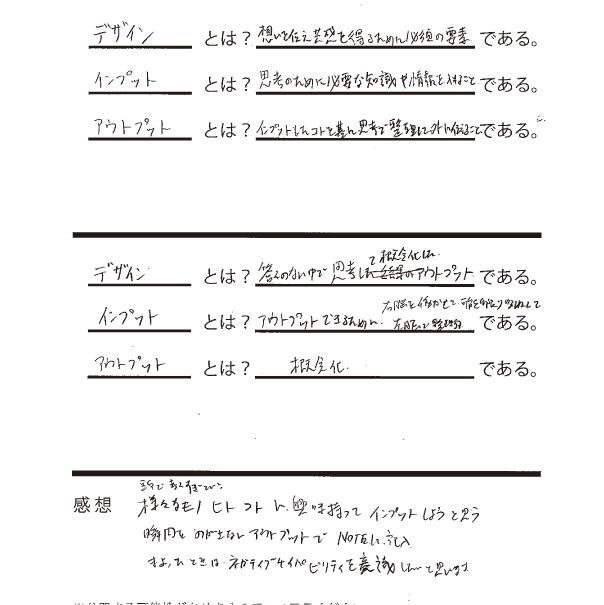 デザイン とは？ 想いを伝え共想を得るために必須の要素 である。
インプット とは？ 思考のために必要な知識や情報を入れること である。
アウトプット とは？ インプットしたコトを基に思考で整理して外に伝えること である。
て概念化した
デザイン とは？ 答えのない中で思考した結果のアウトプット である。
右脳を働かせて
インプット とは？ アウトプットできるために、左脳で整理 である。
アウトプット とは？ 概念化 である。
感想 様々なモノ ヒト コトに興味持ってインプットしようと思う
瞬間をのがさないアウトプットで NOTEに記入
ネガティブケイパビリティを意識したいと思います